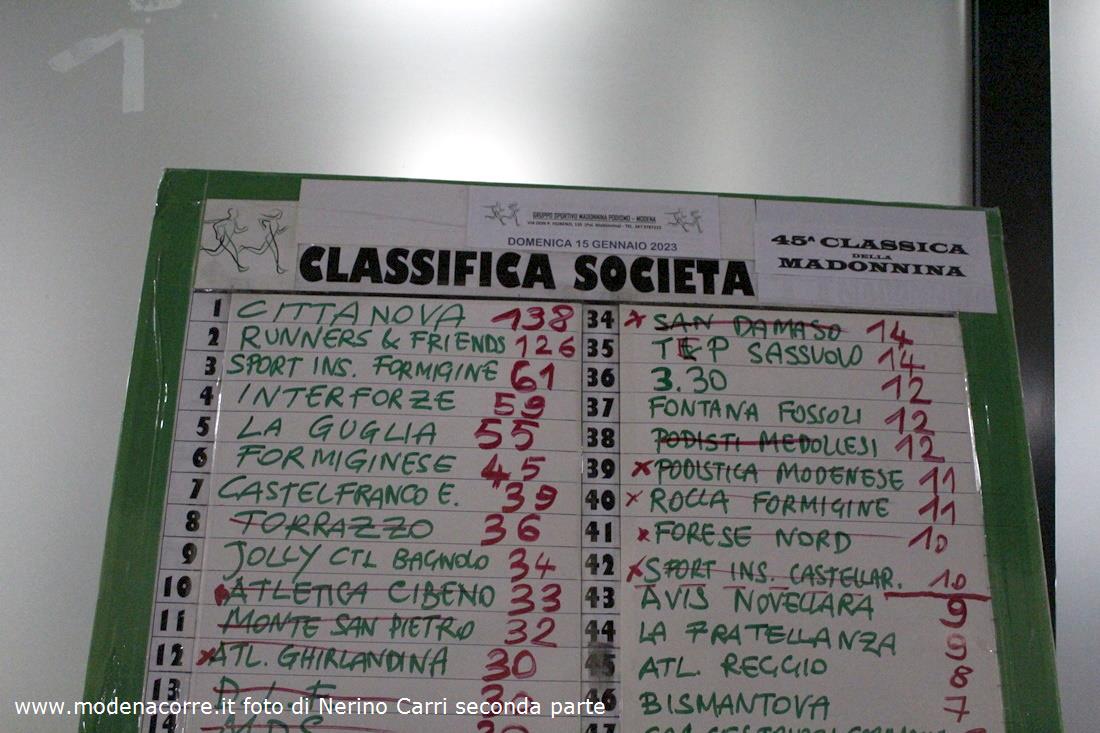 GRUPPO SPORTIVO MADONNINA PODISMO - MODENA
DOMENICA 15 GENNAIO 2023
45ª CLASSICA
DELLA
MADONNINA
CLASSIFICA SOCIETA
1 CITTANOVA 138
2 RUNNERS & FRIENDS 126
3 SPORT INS. FORMIGINE 61
4 INTERFORZE 59
5 LA GUGLIA 55
6 FORMIGINESE 45
7 CASTELFRANCO E. 39
8 TORRAZZO 36
9 JOLLY CTL BAGNOLO 34
10 ATLETICA CIBENO 33
11 MONTE SAN PIETRO 32
12 ATL. GHIRLANDINA 30
13
14 M.D.S.
34 SAN DAMASO 14
35 TEP SASSUOLO 14
36 3.30 12
37 FONTANA FOSSOLI 12
38 PODISTI MEDOLLESI 12
39 PODISTICA MODENESE 11
40 ROCCA FORMIGINE 11
41 FORESE NORD 10
42 SPORT INS. CASTELLAR. 10
43 AVIS NOVELLARA 9
44 LA FRATELLANZA 9
45 ATL. REGGIO 8
46 BISMANTOVA 7
47
www.modenacorre.it foto di Nerino Carri seconda parte